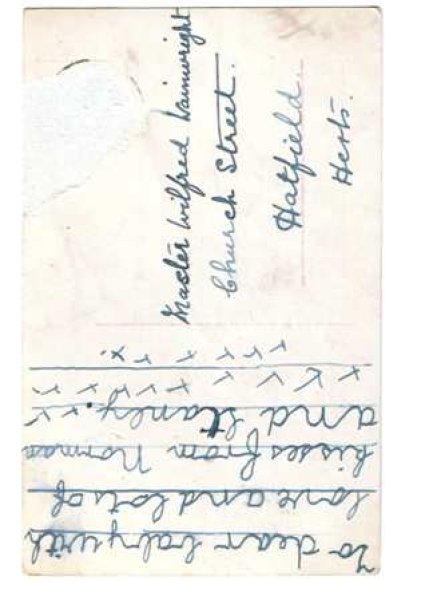 To dear baby with
love and lots of
kisses from Norman
and Stanley. x x
x x x x x x
x x x x x
x x x x x x
Master Wilfred Wainwright
Church Street.
Hatfield.
Herts.